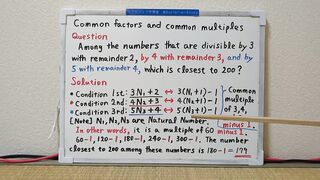 Common factors and common multiples
Question
Among the numbers that are divisible by 3
with remainder 2, by 4 with remainder 3, and by
5 with remainder 4, which is closest to 200?
Solution
• Condition 1st: 3N₁+2 ↔ 3(N₁+1)-1
• Condition 2nd: 4N₂+3 ↔ 4(N₂+1)-1
• Condition 3rd: 5N₃+4 ↔ 5(N₃+1)-1
Common
multiple
of 3,4,
minus 1.
[Note] N₁, N₂, N₃ are Natural Number.
In other words, it is a multiple of 60 minus 1.
60-1, 120-1, 180-1, 240-1, 300-1. The number
closest to 200 among these numbers is 180-1=179